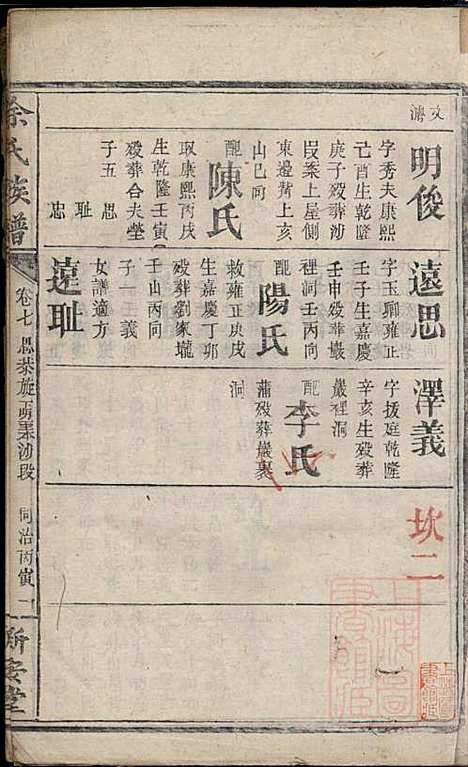 文濤
明俊
字秀夫康熙
己酉生乾隆
庚子歿葬沙
段案上屋側
東邊背上亥
山巳向
配
陳氏
取康熙丙戌
生乾隆壬寅
歿葬合夫塋
子五
思
耻
忠
遠思
字玉瑚雍正
壬子生嘉慶
壬申歿葬巖
裡洞壬丙向
配
陽氏
雍正庚戌
生嘉慶丁卯
歿葬劉家壠
壬山丙向
子一 王義
女譜適方
遠耻
澤義
字援庭乾隆
辛亥生歿葬
巖裡洞
配
李氏
蒲歿葬巖裏
洞
坎二
余氏族譜
卷七
沙段
同治丙寅
新安堂